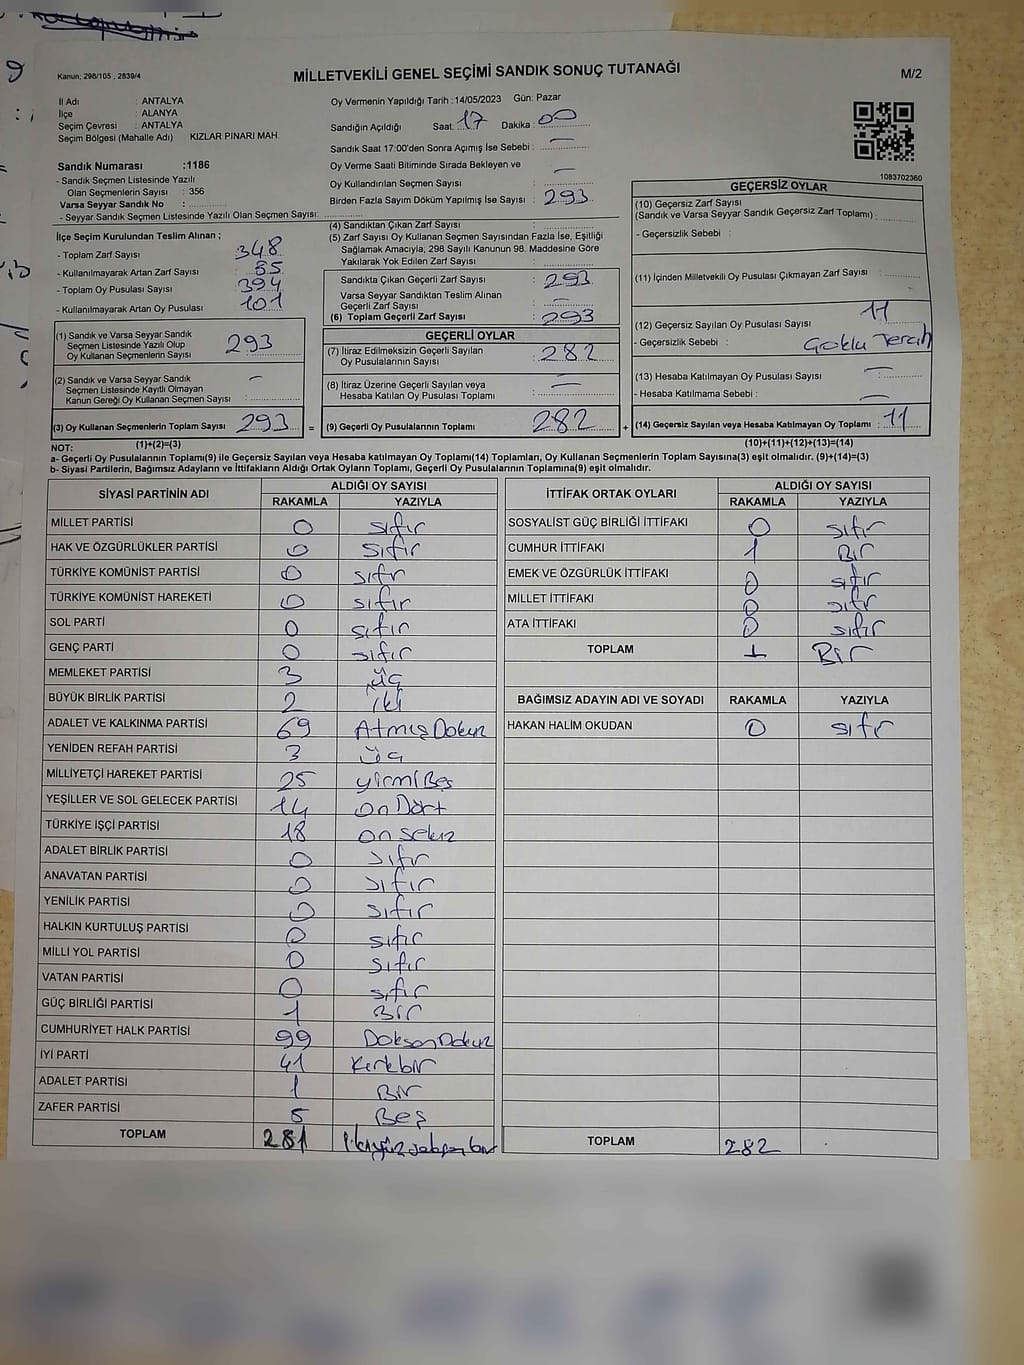 MİLLETVEKİLİ GENEL SEÇİMİ SANDIK SONUÇ TUTANAĞI
Kanun; 298/105 , 2839/4
M/2
İl Adı : ANTALYA
İlçe : ALANYA
Seçim Çevresi : ANTALYA
Seçim Bölgesi (Mahalle Adı) KIZLAR PINARI MAH.
Sandık Numarası :1186
- Sandık Seçmen Listesinde Yazılı
Olan Seçmenlerin Sayısı : 356
Varsa Seyyar Sandık No :
- Seyyar Sandık Seçmen Listesinde Yazılı Olan Seçmen Sayısı:
Oy Vermenin Yapıldığı Tarih :14/05/2023 Gün: Pazar
Sandığın Açıldığı Saat: 17 Dakika : 00
Sandık Saat 17:00'den Sonra Açımış İse Sebebi : —
Oy Verme Saati Bitiminde Sırada Bekleyen ve
Oy Kullandırılan Seçmen Sayısı —
Birden Fazla Sayım Döküm Yapılmış İse Sayısı : 293
1083702360
İlçe Seçim Kurulundan Teslim Alınan ;
- Toplam Zarf Sayısı : 348
- Kullanılmayarak Artan Zarf Sayısı : 55
- Toplam Oy Pusulası Sayısı : 394
- Kullanılmayarak Artan Oy Pusulası : 101
(1) Sandık ve Varsa Seyyar Sandık
Seçmen Listesinde Yazılı Olup
Oy Kullanan Seçmenlerin Sayısı : 293
(2) Sandık ve Varsa Seyyar Sandık
Seçmen Listesinde Kayıtlı Olmayan
Kanun Gereği Oy Kullanan Seçmen Sayısı : —
(3) Oy Kullanan Seçmenlerin Toplam Sayısı : 293 =
(4) Sandıktan Çıkan Zarf Sayısı :
(5) Zarf Sayısı Oy Kullanan Seçmen Sayısından Fazla İse, Eşitliği
Sağlamak Amacıyla, 298 Sayılı Kanunun 98. Maddesine Göre
Yakılarak Yok Edilen Zarf Sayısı :
Sandıkta Çıkan Geçerli Zarf Sayısı : 293
Varsa Seyyar Sandıktan Teslim Alınan
Geçerli Zarf Sayısı : —
(6) Toplam Geçerli Zarf Sayısı : 293
GEÇERLİ OYLAR
(7) İtiraz Edilmeksizin Geçerli Sayılan
Oy Pusulalarının Sayısı : 282
(8) İtiraz Üzerine Geçerli Sayılan veya
Hesaba Katılan Oy Pusulası Toplamı : —
(9) Geçerli Oy Pusulalarının Toplamı : 282 +
GEÇERSİZ OYLAR
(10) Geçersiz Zarf Sayısı
(Sandık ve Varsa Seyyar Sandık Geçersiz Zarf Toplamı) :
- Geçersizlik Sebebi :
(11) İçinden Milletvekili Oy Pusulası Çıkmayan Zarf Sayısı :
(12) Geçersiz Sayılan Oy Pusulası Sayısı : 11
- Geçersizlik Sebebi : Çoklu Tercih
(13) Hesaba Katılmayan Oy Pusulası Sayısı : —
- Hesaba Katılmama Sebebi : —
(14) Geçersiz Sayılan veya Hesaba Katılmayan Oy Toplamı : 11
NOT: (1)+(2)=(3) (10)+(11)+(12)+(13)=(14)
a- Geçerli Oy Pusulalarının Toplamı(9) ile Geçersiz Sayılan veya Hesaba Katılmayan Oy Toplamı(14) Toplamları, Oy Kullanan Seçmenlerin Toplam Sayısına(3) eşit olmalıdır. (9)+(14)=(3)
b- Siyasi Partilerin, Bağımsız Adayların ve İttifakların Aldığı Ortak Oyların Toplamı, Geçerli Oy Pusulalarının Toplamına(9) eşit olmalıdır.
SİYASİ PARTİNİN ADI ALDIĞI OY SAYISI
RAKAMLA YAZIYLA
MİLLET PARTİSİ 0 sıfır
HAK VE ÖZGÜRLÜKLER PARTİSİ 0 sıfır
TÜRKİYE KOMÜNİST PARTİSİ 0 sıfr
TÜRKİYE KOMÜNİST HAREKETİ 0 sıfır
SOL PARTİ 0 sıfır
GENÇ PARTİ 0 sıfır
MEMLEKET PARTİSİ 3 üç
BÜYÜK BİRLİK PARTİSİ 2 iki
ADALET VE KALKINMA PARTİSİ 69 AtmışDokuz
YENİDEN REFAH PARTİSİ 3 üç
MİLLİYETÇİ HAREKET PARTİSİ 25 yirmiBeş
YEŞİLLER VE SOL GELECEK PARTİSİ 14 onDört
TÜRKİYE İŞÇİ PARTİSİ 18 onsekiz
ADALET BİRLİK PARTİSİ 0 sıfır
ANAVATAN PARTİSİ 0 sıfır
YENİLİK PARTİSİ 0 sıfır
HALKIN KURTULUŞ PARTİSİ 0 sıfır
MİLLİ YOL PARTİSİ 0 sıfır
VATAN PARTİSİ 0 sıfır
GÜÇ BİRLİĞİ PARTİSİ 1 Bir
CUMHURİYET HALK PARTİSİ 99 DoksanDokuz
İYİ PARTİ 41 Kırkbir
ADALET PARTİSİ 1 Bir
ZAFER PARTİSİ 5 Beş
TOPLAM 281 ikiyüz seksen bir
İTTİFAK ORTAK OYLARI ALDIĞI OY SAYISI
RAKAMLA YAZIYLA
SOSYALİST GÜÇ BİRLİĞİ İTTİFAKI 0 sıfır
CUMHUR İTTİFAKI 1 Bir
EMEK VE ÖZGÜRLÜK İTTİFAKI 0 sıfır
MİLLET İTTİFAKI 0 sıfır
ATA İTTİFAKI 0 sıfır
TOPLAM 1 Bir
BAĞIMSIZ ADAYIN ADI VE SOYADI RAKAMLA YAZIYLA
HAKAN HALİM OKUDAN 0 sıfır
TOPLAM 282